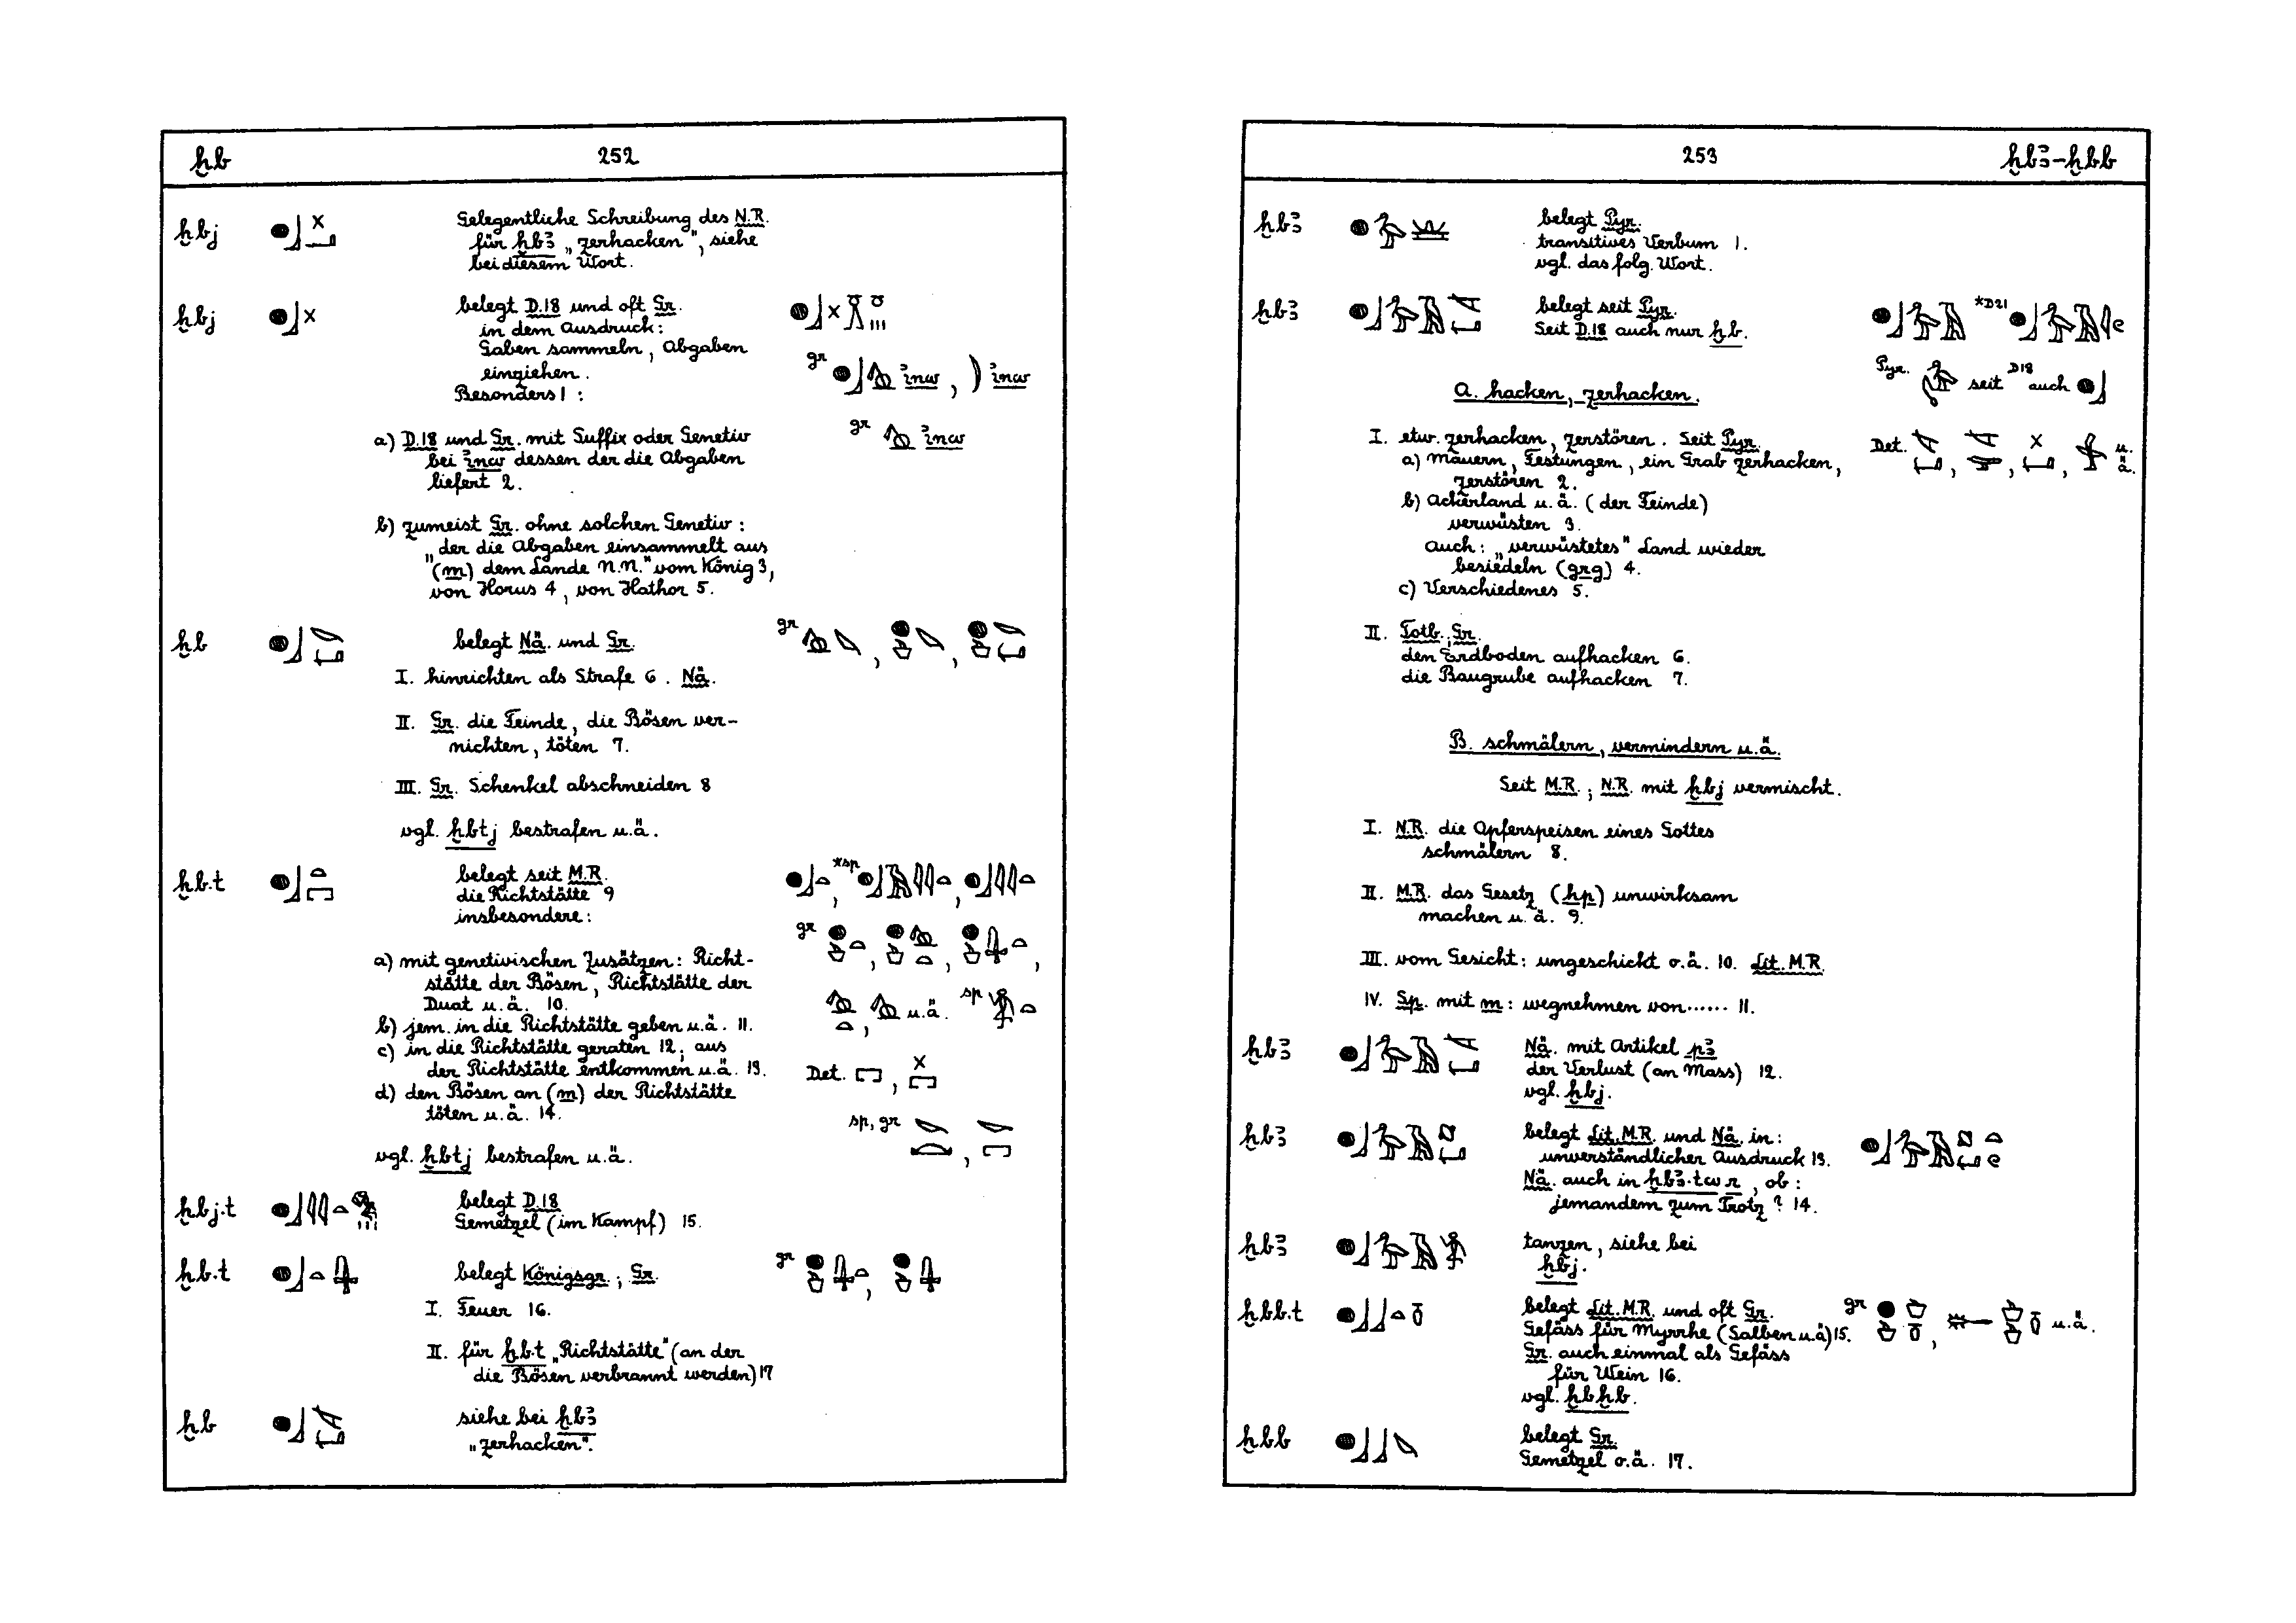 ḫb
252
ḫbj
Gelegentliche Schreibung des N.R.
für ḫbꜣ „zerhacken“, siehe
bei diesem Wort.
ḫbj
belegt D.18 und oft Gr.
in dem Ausdruck:
Gaben sammeln, Abgaben
einziehen.
Besonders 1:
gr ꞽnw, ꞽnw
gr ꞽnw
a) D.18 und Gr. mit Suffix oder Genetiv
bei ꞽnw dessen der die Abgaben
liefert 2.
b) zumeist Gr. ohne solchen Genetiv:
„der die Abgaben einsammelt aus
(m) dem Lande N.N.“ vom König 3,
von Horus 4, von Hathor 5.
ḫb
belegt Nä. und Gr.
gr
I. hinrichten als Strafe 6. Nä.
II. Gr. die Feinde, die Bösen ver-
nichten, töten 7.
III. Gr. Schenkel abschneiden 8
vgl. ḫbtj bestrafen u.ä.
ḫb.t
belegt seit M.R.
die Richtstätte 9
insbesondere:
*sp
gr
a) mit genetivischen Zusätzen: Richt-
stätte der Bösen, Richtstätte der
Duat u.ä. 10.
u.ä. sp
b) jem. in die Richtstätte geben u.ä. 11.
c) in die Richtstätte geraten 12; aus
der Richtstätte entkommen u.ä. 13.
Det.
d) den Bösen an (m) der Richtstätte
töten u.ä. 14.
sp, gr
vgl. ḫbtj bestrafen u.ä.
ḫbj.t
belegt D.18
Gemetzel (im Kampf) 15.
ḫb.t
belegt Königsgr.; Gr.
gr
I. Feuer 16.
II. für ḫb.t „Richtstätte“ (an der
die Bösen verbrannt werden) 17
ḫb
siehe bei ḫbꜣ
„zerhacken“.
253
ḫbꜣ-ḫbb
ḫbꜣ
belegt Pyr.
transitives Verbum 1.
vgl. das folg. Wort.
ḫbꜣ
belegt seit Pyr.
Seit D.18 auch nur ḫb.
*D21
Pyr. seit D18 auch
A. hacken, zerhacken.
I. etw. zerhacken, zerstören. Seit Pyr.
Det. u. ä.
a) Mauern, Festungen, ein Grab zerhacken,
zerstören 2.
b) Ackerland u.ä. (der Feinde)
verwüsten 3.
auch: „verwüstetes“ Land wieder
besiedeln (grg) 4.
c) Verschiedenes 5.
II. Totb.; Gr.
den Erdboden aufhacken 6.
die Baugrube aufhacken 7.
B. schmälern, vermindern u.ä.
Seit M.R.; N.R. mit ḫbj vermischt.
I. N.R. die Opferspeisen eines Gottes
schmälern 8.
II. M.R. das Gesetz (hp) unwirksam
machen u.ä. 9.
III. vom Gesicht: ungeschickt o.ä. 10. Lit. M.R.
IV. Sp. mit m: wegnehmen von...... 11.
ḫbꜣ
Nä. mit Artikel pꜣ
der Verlust (an Mass) 12.
vgl. ḫbj.
ḫbꜣ
belegt Lit. M.R. und Nä. in:
unverständlicher Ausdruck 13.
Nä. auch in ḫbꜣ.tw r, ob:
jemandem zum Trotz? 14.
ḫbꜣ
tanzen, siehe bei
ḫbj.
ḫbb.t
belegt Lit. M.R. und oft Gr.
Gefäss für Myrrhe (Salben u.ä) 15.
Gr. auch einmal als Gefäss
für Wein 16.
vgl. ḫbḫb.
gr u.ä.
ḫbb
belegt Gr.
Gemetzel o.ä. 17.